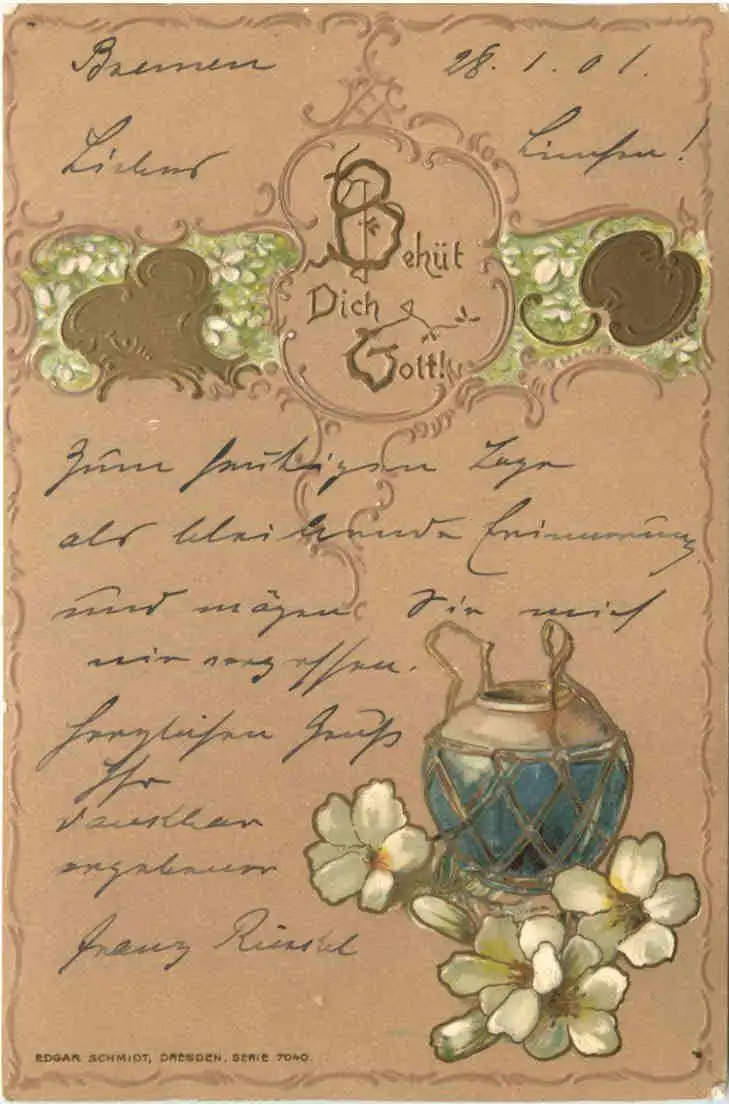 Bremen 28.1.01.
Liebes
Behüt
Dich
Gott!
Zum heutigen Tage
als bleibende Erinnerung
und mögen Sie mich
nie vergessen.
Herzlichen Gruß
Ihr
dankbar
ergebener
Franz
EDGAR SCHMIDT, DRESDEN. SERIE 7040.